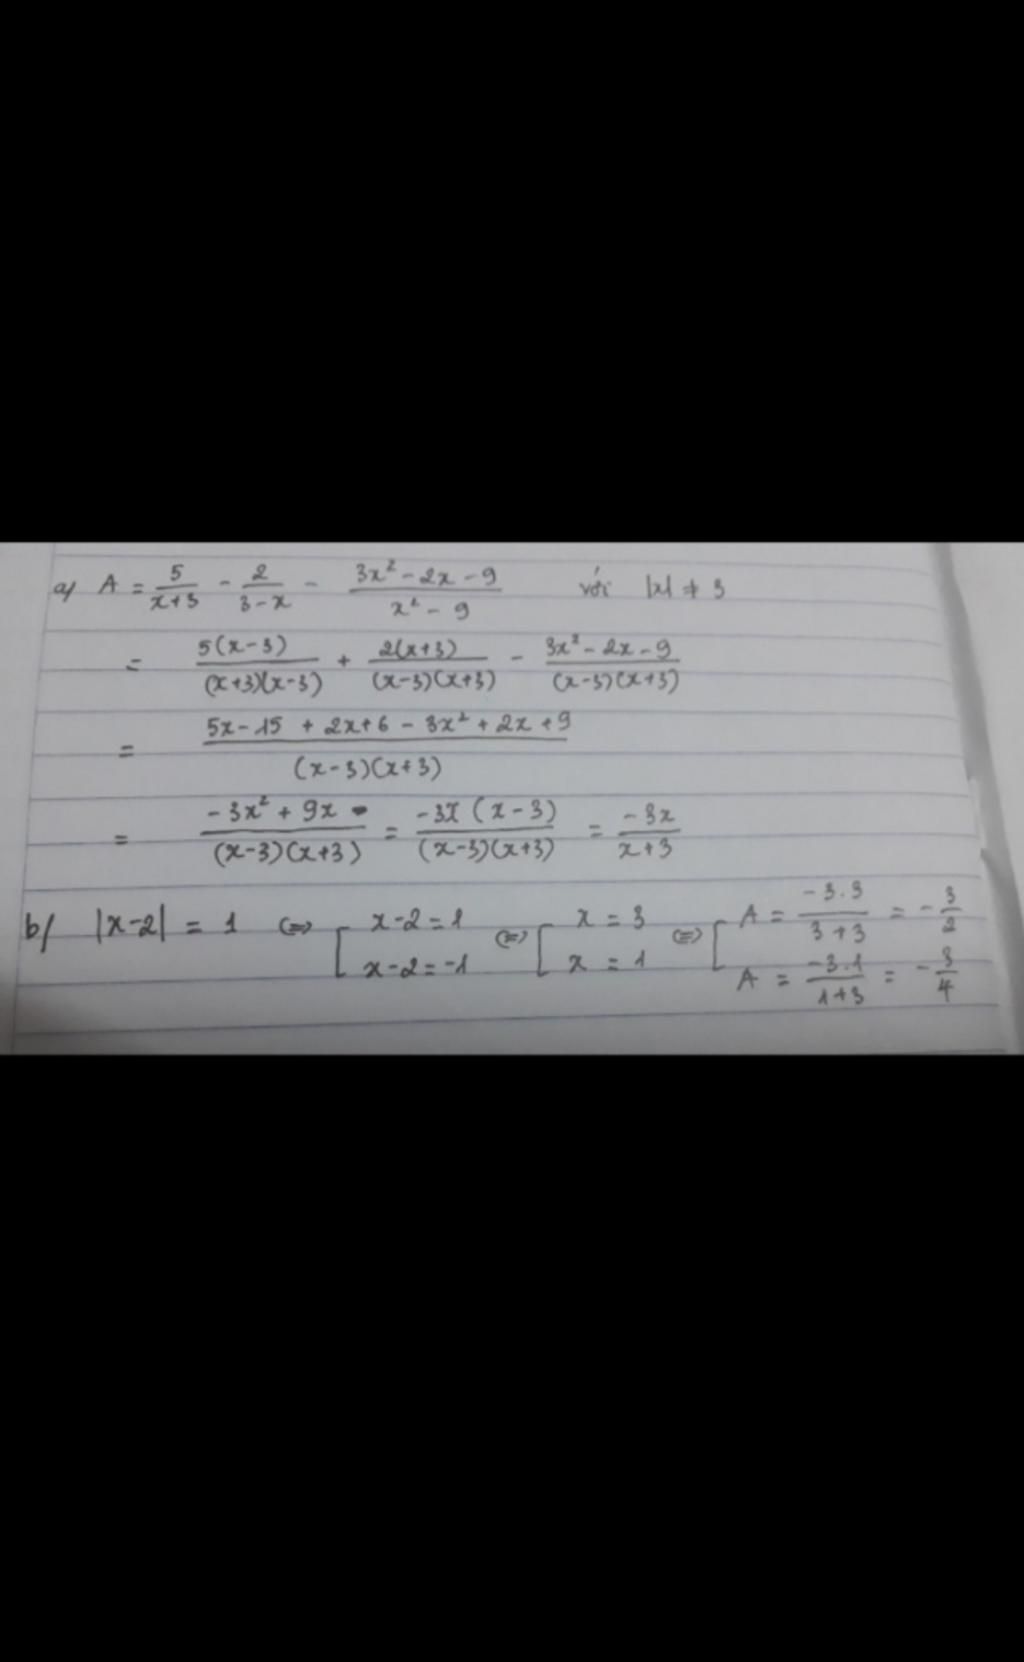 a/ A = 5/(x+3) - 2/(3-x) - (3x² - 2x - 9)/(x² - 9) với |x| ≠ 3
= 5(x-3)/((x+3)(x-3)) + 2(x+3)/((x-3)(x+3)) - (3x² - 2x - 9)/((x-3)(x+3))
= (5x - 15 + 2x + 6 - 3x² + 2x + 9)/((x-3)(x+3))
= (-3x² + 9x)/((x-3)(x+3)) = -3x(x-3)/((x-3)(x+3)) = -3x/(x+3)
b/ |x-2| = 1 <=> [ x-2 = 1 <=> [ x = 3 <=> [ A = (-3.3)/(3+3) = -3/2
x-2 = -1 x = 1 A = (-3.1)/(1+3) = -3/4